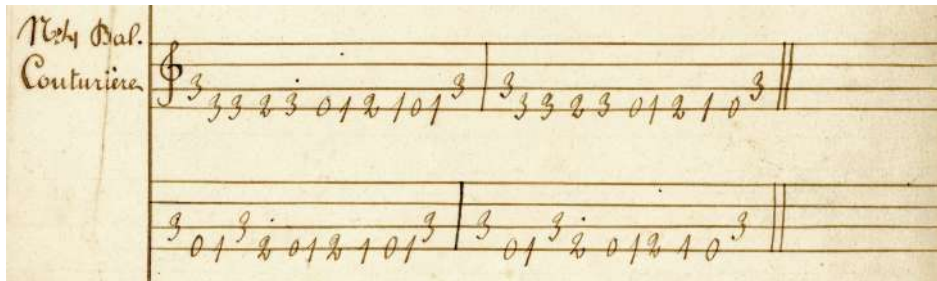 Bal.
Couturière
3 3 3 2 3 0 1 2 1 0 1 3 3 3 3 2 3 0 1 2 1 0 3
3 0 1 3 2 0 1 2 1 0 1 3 3 0 1 3 2 0 1 2 1 0 3